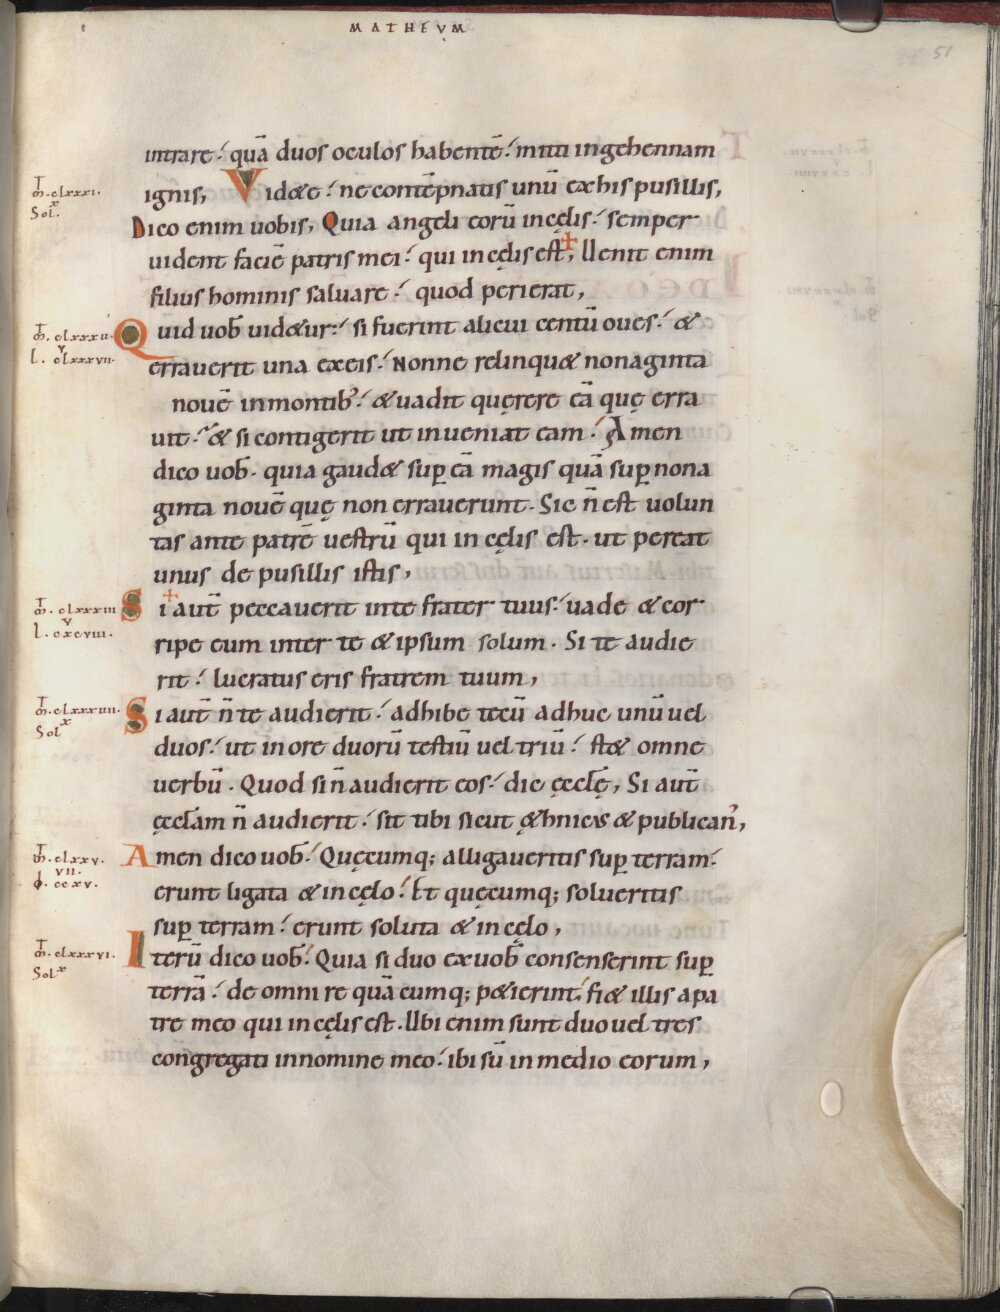 MATHEVM
51
intrare; quā duos oculos habentē; mitti ingehennam
ignis, Videte; ne contēpnatis unū exhis pusillis,
Dico enim uobis, Quia angeli eorū incęlis; semper
uident faciē patris mei; qui incęlis est, Uenit enim
filius hominis saluare; quod perierat,
Quid uob̄ uidetur; si fuerint alicui centū oues; &
errauerit una exeis; Nonne relinqu& nonaginta
nouē inmontib; & uadit quęrere eā quę erra
uit; & si contigerit ut inueniat eam; Amen
dico uob̄. quia gaud& sup eā magis quā sup nona
ginta nouē quę non errauerunt. Sic n̄ est uolun
tas ante patrē uestrū qui in cęlis est. ut pereat
unus de pusillis istis,
Si aut̄ peccauerit inte frater tuus; uade & cor
ripe eum inter te & ipsum solum. Si te audie
rit; lucratus eris fratrem tuum,
Si aut̄ n̄ te audierit; adhibe tecū adhuc unū uel
duos; ut inore duorū testiū uel triū; st& omne
uerbū. Quod si n̄ audierit eos; dic ęcclę, Si aut̄
ęcclam n̄ audierit; sit tibi sicut &hnicus & publican',
Amen dico uob̄. Quęcumq; alligaueritis sup terram;
erunt ligata & incęlo; Et quęcumq; solueritis
sup terram; erunt soluta & incęlo,
Iterū dico uob̄. Quia si duo exuob̄ consenserint sup
terrā; de omni re quā cumq; p&ierint; fi& illis apa
tre meo qui incęlis est. Ubi enim sunt duo uel tres
congregati innomine meo; ibi sū in medio eorum,
m̄. clxxxi.
x
Sol.
m̄. clxxxii.
v
l. clxxxvii.
m̄. clxxxiii
v
l. cxcviii.
m̄. clxxxiiii.
x
Sol
m̄. clxxv.
vii.
ccxv.
m̄. clxxxvi.
x
Sol